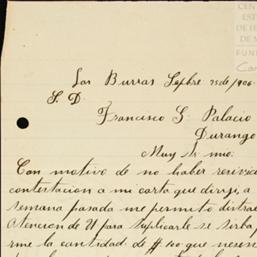 CEN
EST
DE H
DE M
FUN
Ca
Las Burras Sepbre 25 de/906
S. D.
Francisco G. Palacio
Durango
Muy Sr. mio:
Con motivo de no haber resivido
contestacion a mi carta que dirijo, a
semana pasada me permito distrae
atencion de U para suplicarle se sirba
rme la cantidad de # no que neces